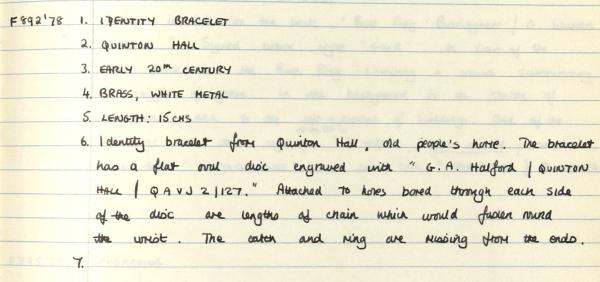 F892'78 1. IDENTITY BRACELET
2. QUINTON HALL
3. EARLY 20TH CENTURY
4. BRASS, WHITE METAL
5. LENGTH: 15CMS
6. Identity bracelet from Quinton Hall, old people's home. The bracelet
has a flat oval disc engraved with "G.A. Halford / QUINTON
HALL / QAVJ2/127." Attached to holes bored through each side
of the disc are lengths of chain which would fasten round
the wrist. The catch and ring are missing from the ends.
7.